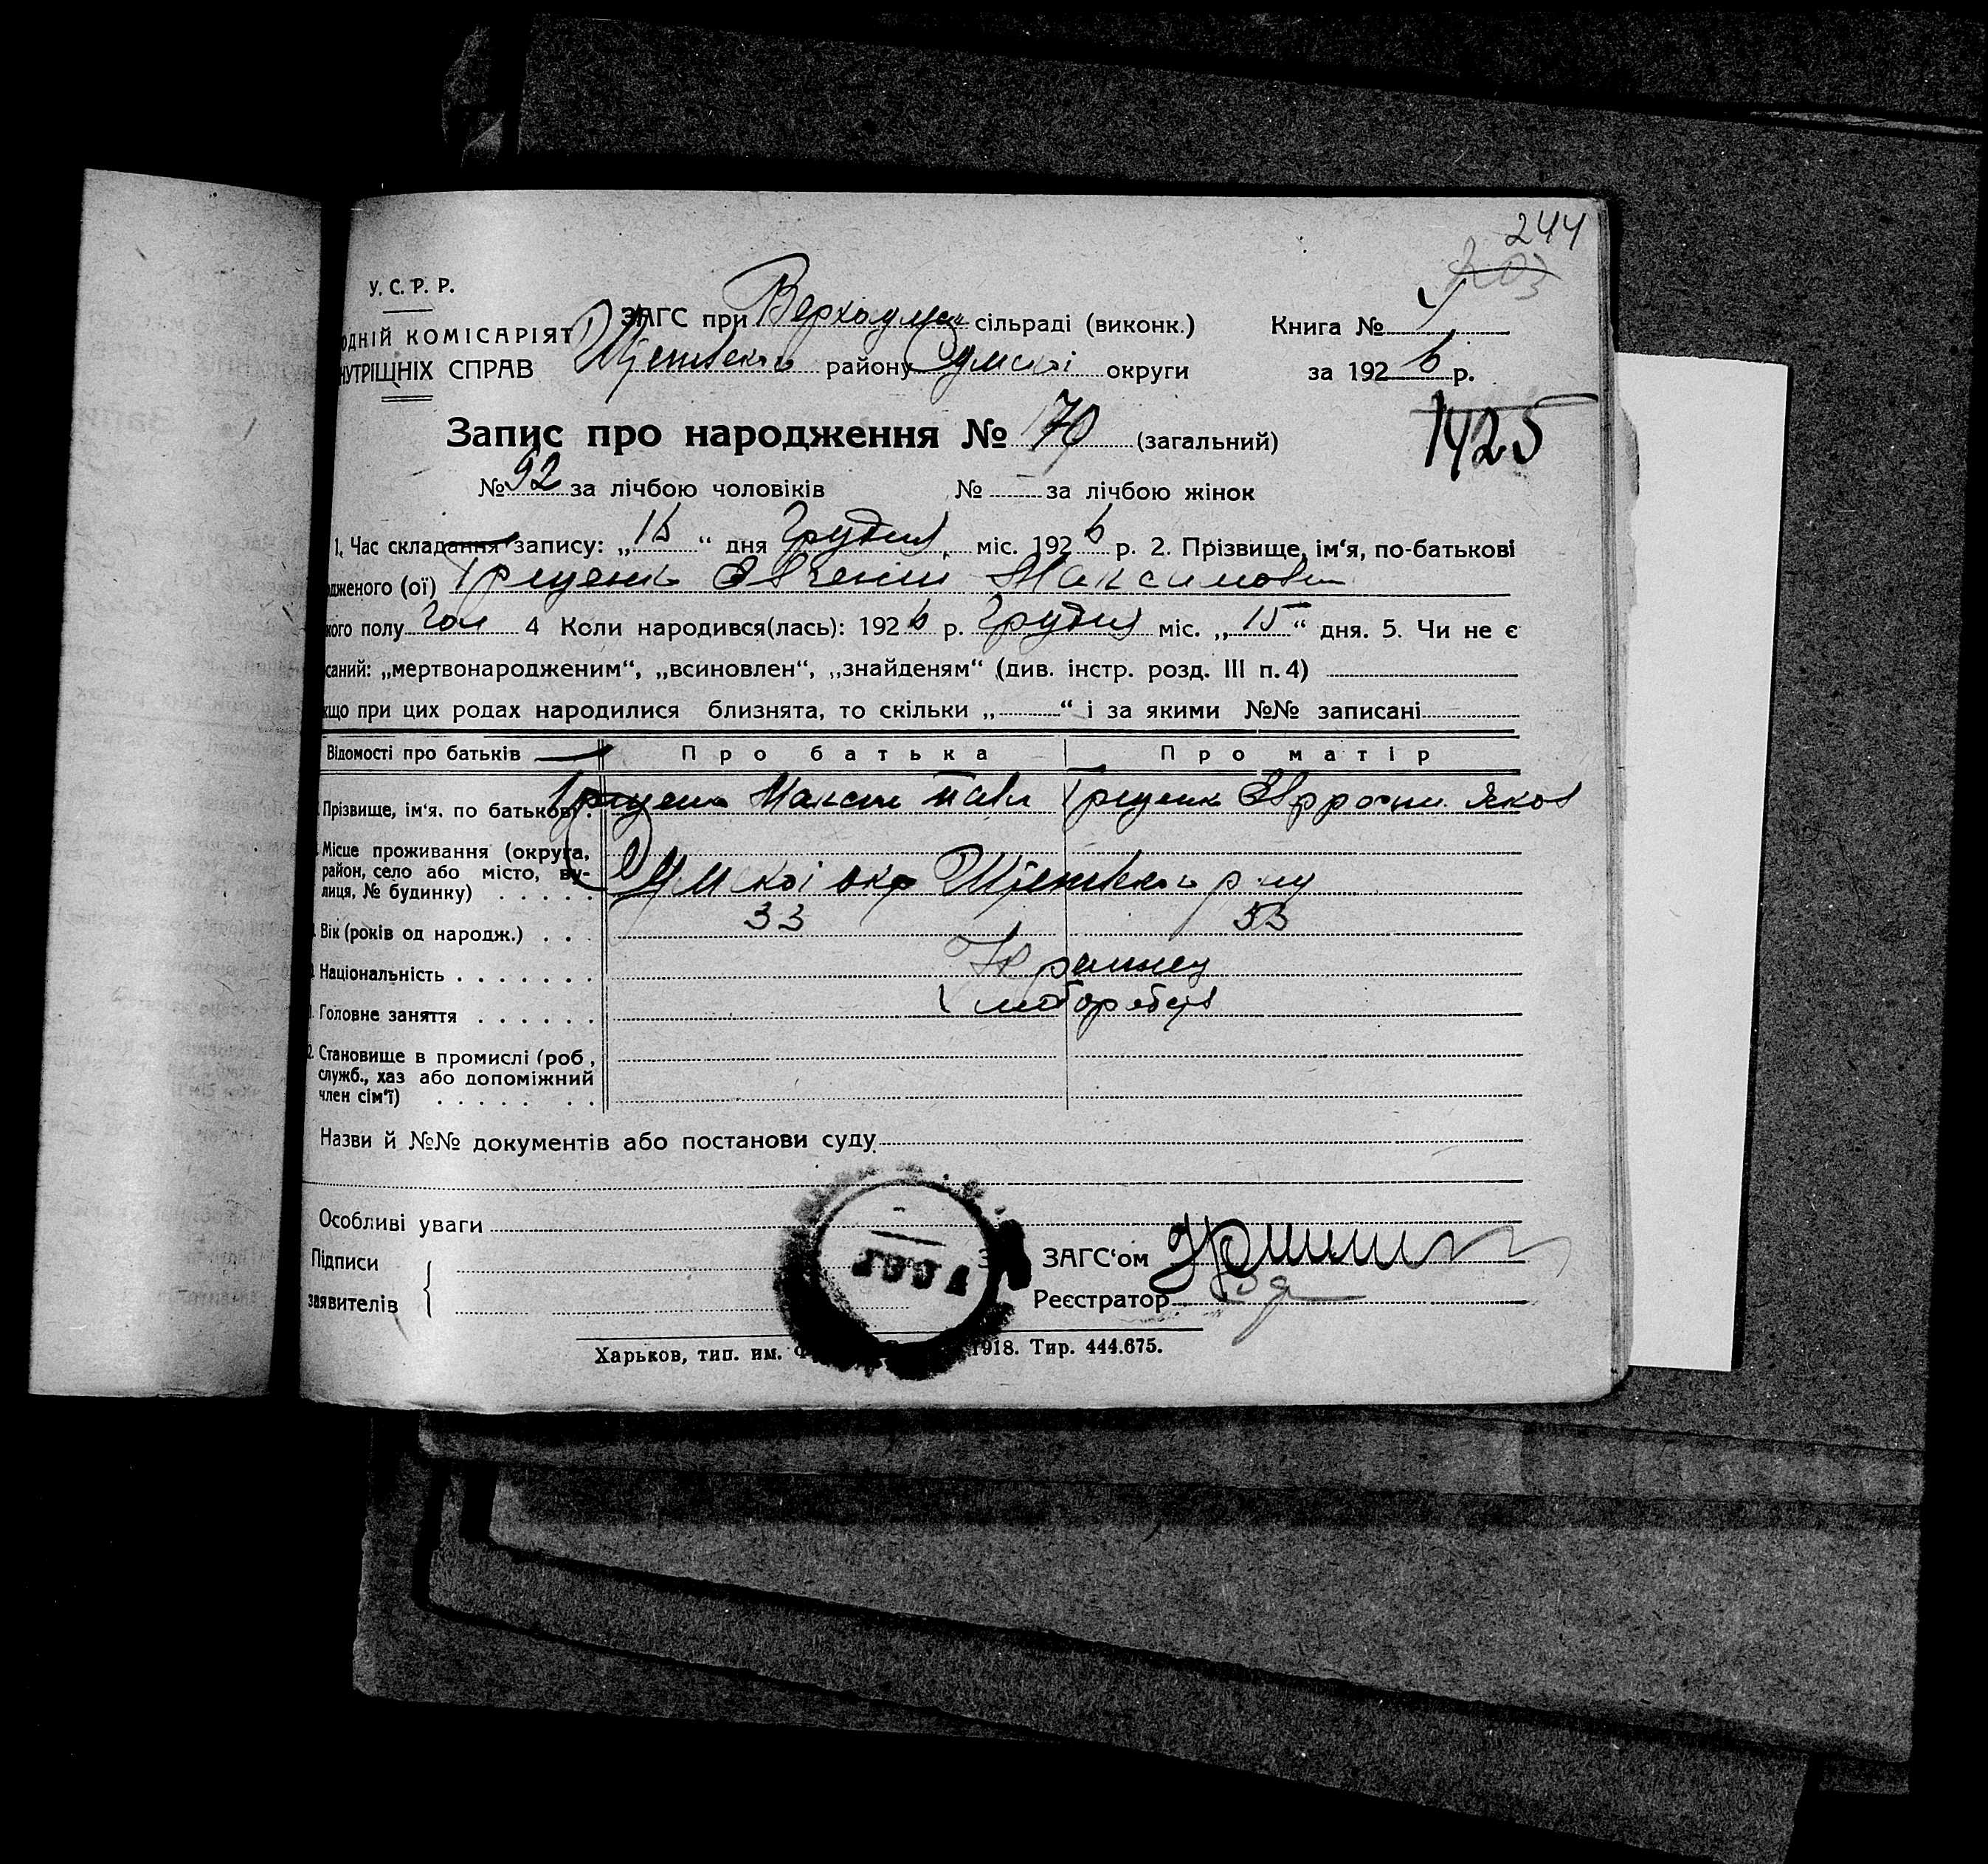 244
203
У. С. Р. Р.
ОДНІЙ КОМІСАРІЯТ
НУТРІШНІХ СПРАВ
ЗАГС при Верхосум сільраді (виконк.)
району Сумської округи
Книга №
за 1926 р.
1425
Запис про народження № 170 (загальний)
№ 92 за лічбою чоловіків № за лічбою жінок
1. Час складання запису: „16“ дня Грудня міс. 1926 р. 2. Прізвище, ім‘я, по-батькові
дженого (ої) Грищенко Євгеній Максимович
ого полу чол 4 Коли народився(лась): 1926 р. Грудня міс. „15“ дня. 5. Чи не є
саний: „мертвонародженим“, „всиновлен“, „знайденям“ (див. інстр. розд. III п. 4)
кщо при цих родах народилися близнята, то скільки „ “ і за якими №№ записані
Відомості про батьків Про батька Про матір
Прізвище, ім‘я. по батькові . Грищенко Максим Павл Грищенко Яков
Місце проживання (округа,
район, село або місто, ву-
лиця, № будинку) . . . . . Сумської окр р-ну
Вік (років од народж.) . . . 33 33
Національність . . . . . . . Украинец
Головне заняття . . . . . . хлібороб
Становище в промислі (роб,
служб., хаз або допоміжний
член сім‘ї) . . . . . . .
Назви й №№ документів або постанови суду
Особливі уваги
Підписи
заявителів
ЗАГС‘ом
Реєстратор
Харьков, тип. им. 1918. Тир. 444.675.